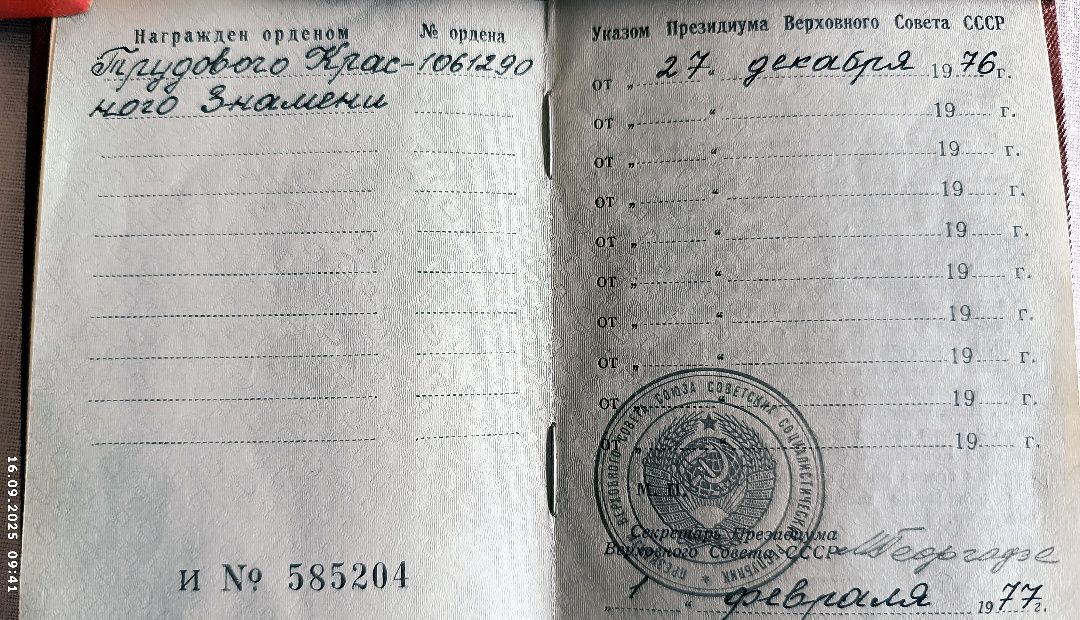 Награжден орденом № ордена
Трудового Крас- 1061290
ного Знамени
И № 585204
Указом Президиума Верховного Совета СССР
от „27“ декабря 1976 г.
от „ “ 19 г.
от „ “ 19 г.
от „ “ 19 г.
от „ “ 19 г.
от „ “ 19 г.
от „ “ 19 г.
от „ “ 19 г.
от „ “ 19 г.
от „ “ 19 г.
ПРЕЗИДИУМ ВЕРХОВНОГО СОВЕТА СОЮЗА СОВЕТСКИХ СОЦИАЛИСТИЧЕСКИХ РЕСПУБЛИК
М. П.
Секретарь Президиума
Верховного Совета СССР МГеоргадзе
„1“ февраля 1977 г.
16.09.2025 09:41